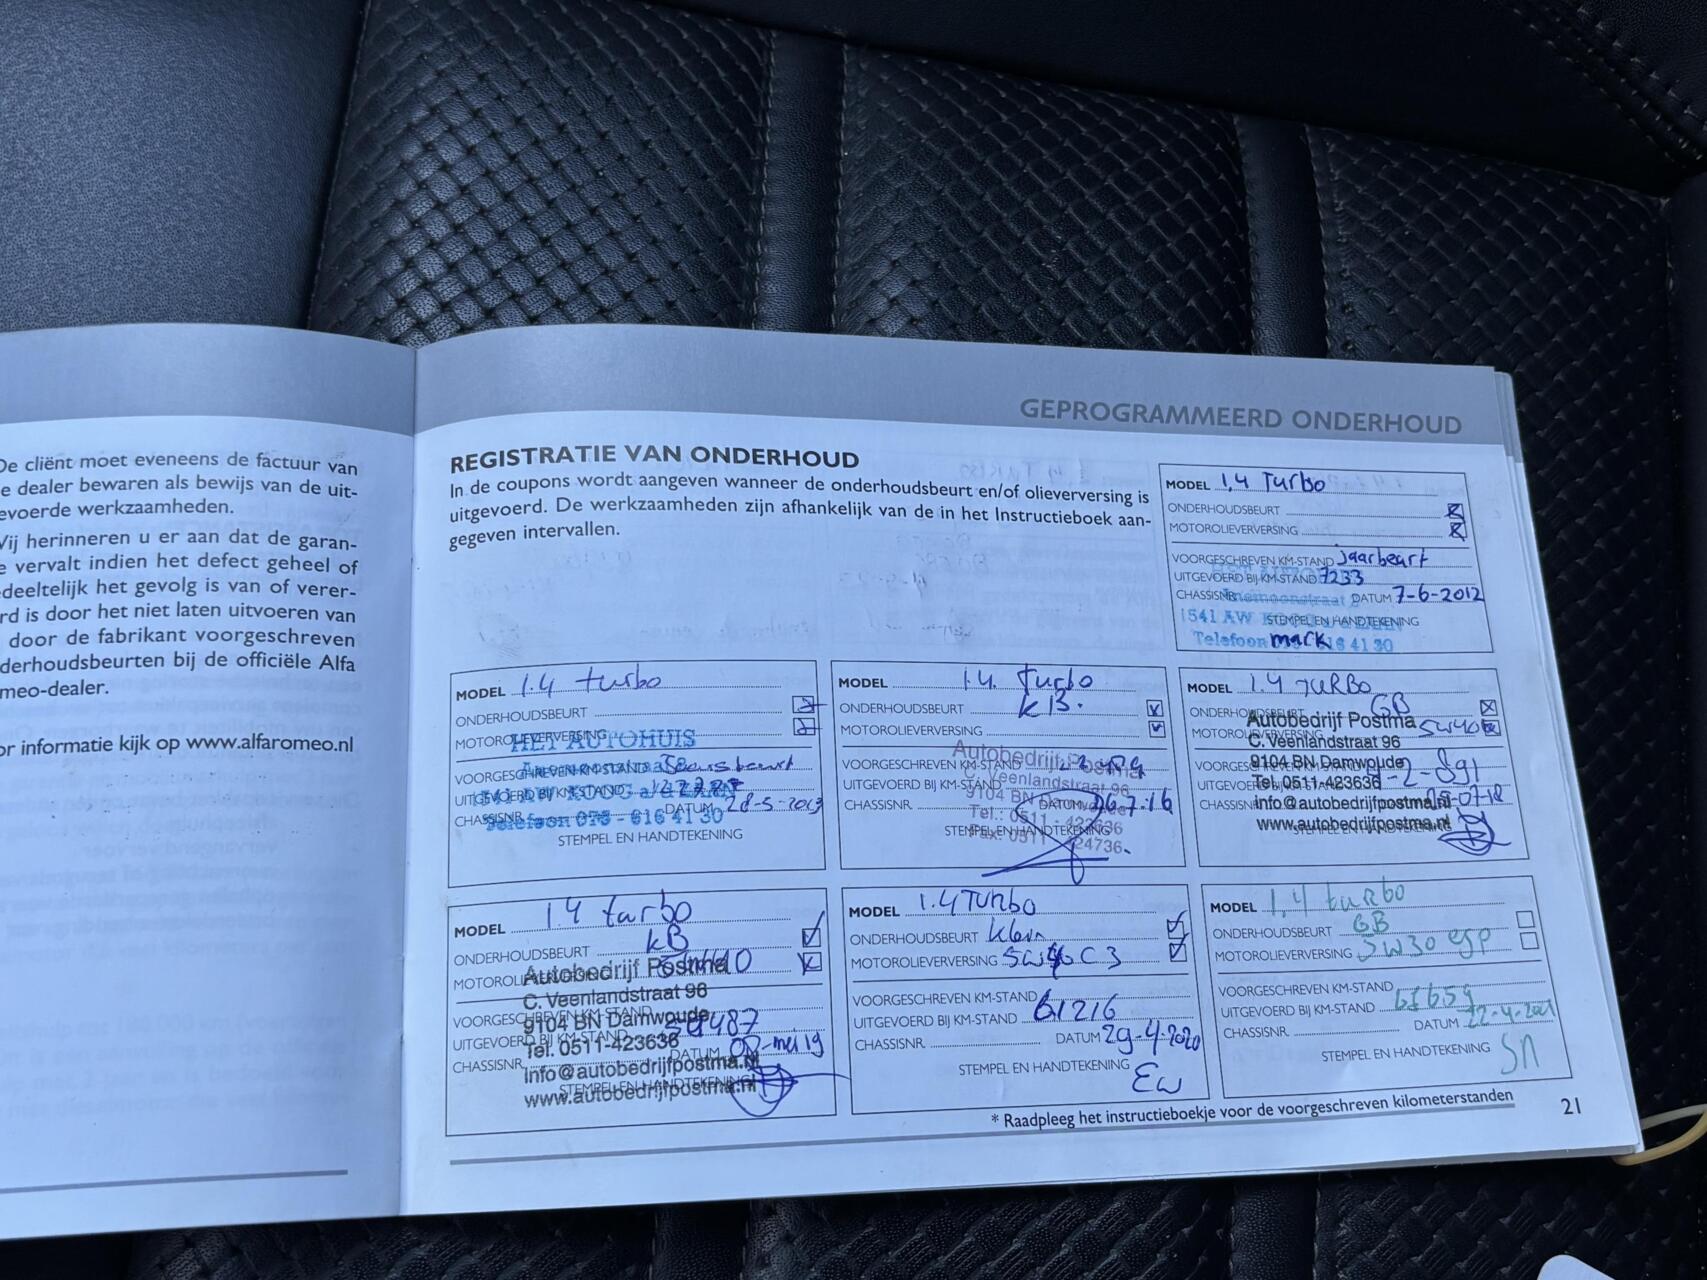 De cliënt moet eveneens de factuur van
e dealer bewaren als bewijs van de uit-
evoerde werkzaamheden.
Wij herinneren u er aan dat de garan-
e vervalt indien het defect geheel of
deeltelijk het gevolg is van of verer-
rd is door het niet laten uitvoeren van
door de fabrikant voorgeschreven
derhoudsbeurten bij de officiële Alfa
meo-dealer.
or informatie kijk op www.alfaromeo.nl
GEPROGRAMMEERD ONDERHOUD
REGISTRATIE VAN ONDERHOUD
In de coupons wordt aangeven wanneer de onderhoudsbeurt en/of olieverversing is
uitgevoerd. De werkzaamheden zijn afhankelijk van de in het Instructieboek aan-
gegeven intervallen.
MODEL 1,4 Turbo
ONDERHOUDSBEURT
MOTOROLIEVERVERSING
VOORGESCHREVEN KM-STAND Jaarbeurt
UITGEVOERD BIJ KM-STAND 7233
CHASSISNR. DATUM 7-6-2012
1541 AW
STEMPEL EN HANDTEKENING
Telefoon mark 616 41 30
MODEL 1.4 turbo
ONDERHOUDSBEURT
MOTOROLIEVERVERSING
HET AUTOHUIS
VOORGESCHREVEN KM-STAND
UITGEVOERD BIJ KM-STAND
1541 AW KOOG a/d ZAAN
CHASSISNR. DATUM 28-5-2013
Telefoon 075 - 616 41 30
STEMPEL EN HANDTEKENING
MODEL 1.4. turbo
ONDERHOUDSBEURT KB.
MOTOROLIEVERVERSING
Autobedrijf Postma
VOORGESCHREVEN KM-STAND
C. Veenlandstraat 96
UITGEVOERD BIJ KM-STAND
9104 BN Damwoude
CHASSISNR. DATUM 26.7.16
Tel.: 0511 - 423636
STEMPEL EN HANDTEKENING
Fax: 0511 - 424736
MODEL 1.4 TURBO
ONDERHOUDSBEURT GB
Autobedrijf Postma
MOTOROLIEVERVERSING 5W40
C. Veenlandstraat 96
9104 BN Damwoude
VOORGESCHREVEN KM-STAND
UITGEVOERD BIJ KM-STAND
Tel. 0511-423636
CHASSISNR.
info@autobedrijfpostma.nl
www.autobedrijfpostma.nl
STEMPEL EN HANDTEKENING
MODEL 1.4 turbo
ONDERHOUDSBEURT KB
MOTOROLIEVERVERSING
Autobedrijf Postma
C. Veenlandstraat 96
VOORGESCHREVEN KM-STAND
9104 BN Damwoude
UITGEVOERD BIJ KM-STAND
Tel. 0511-423636
CHASSISNR. DATUM 02-mei 19
info@autobedrijfpostma.nl
STEMPEL EN HANDTEKENING
www.autobedrijfpostma.nl
MODEL 1.4 Turbo
ONDERHOUDSBEURT klein
MOTOROLIEVERVERSING 5W40 C3
VOORGESCHREVEN KM-STAND
UITGEVOERD BIJ KM-STAND 61216
CHASSISNR. DATUM 29-4-2020
STEMPEL EN HANDTEKENING
EW
MODEL 1,4 turbo
ONDERHOUDSBEURT GB
MOTOROLIEVERVERSING 5W30
VOORGESCHREVEN KM-STAND
UITGEVOERD BIJ KM-STAND
CHASSISNR. DATUM 22-4-2021
STEMPEL EN HANDTEKENING SN
* Raadpleeg het instructieboekje voor de voorgeschreven kilometerstanden
21